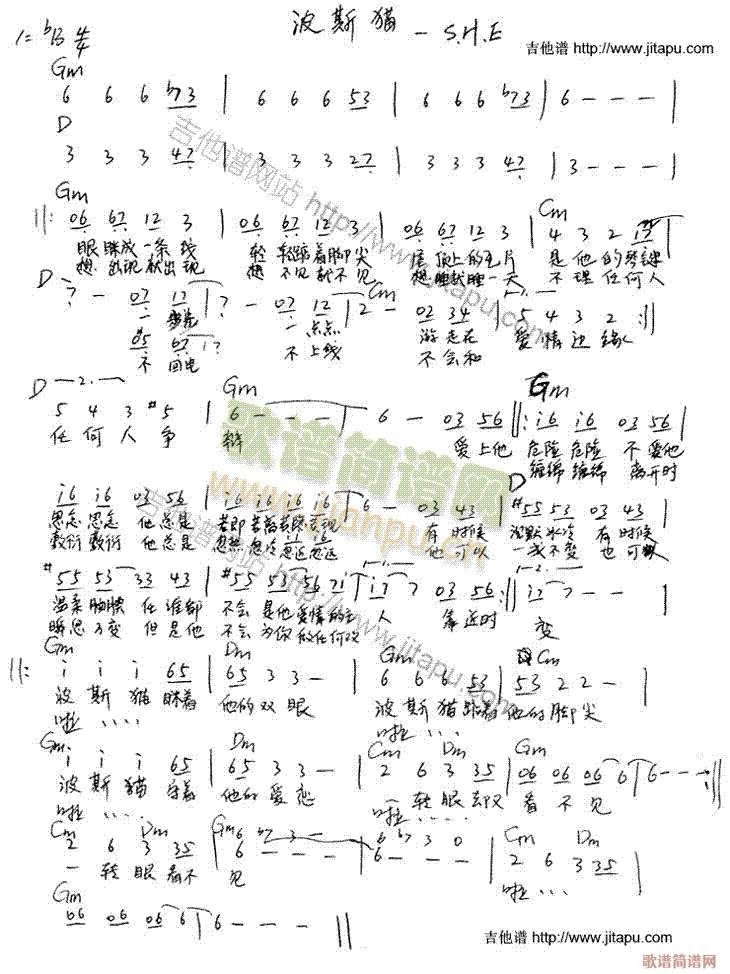 波斯猫 - S.H.E
1=ᵇB 4/4
吉他谱 http://www.jitapu.com
Gm
6 6 6 b73 | 6 6 6 53 | 6 6 6 b73 | 6 - - - |
D
3 3 3 47 | 3 3 3 27 | 3 3 3 47 | 3 - - - |
Gm Cm
||: 06 67 12 3 | 06 67 12 3 | 06 67 12 3 | 4 3 2 17 |
眼眯成一条线 轻轻踮着脚尖 尾巴上的毛片 是他的琴键
想出现就出现 想不见就不见 想睡就睡一天 不理任何人
D Cm
7 - 07 12 | 7 - 07 12 | 2 - 02 34 | 5 4 3 2 :||
一步步 一点点 游走在 爱情边缘
05 67
不回电 不上线 不会和
D Gm Gm
5 4 3 #5 | 6 - - - | 6 - 03 56 ||: i6 i6 03 56 |
任何人争 辩 爱上他 危险危险 不爱他
缠绵缠绵 离开时
D
i6 i6 03 56 | i6 i6 i6 i6 | 6 - 03 43 | #55 53 03 43 |
思念思念 他总是 有时候 沉默冰冷 有时候
敷衍敷衍 他总是 忽热忽冷忽近忽远 他可以 一成不变 也可以
#55 53 33 43 | #55 53 56 7i | i7 7 03 56 :|| i7 7 - - |
温柔腼腆 任谁都 不会是他爱情的主 人 靠近时 变
瞬息万变 但是他 不会为你做任何改
Gm Dm Gm Cm
||: i i i 65 | 65 3 3 - | 6 6 6 53 | 53 2 2 - |
波斯猫眯着 他的双眼 波斯猫踮着 他的脚尖
啦.... 啦....
Gm Dm Cm Dm Gm
i i i 65 | 65 3 3 - | 2 6 3 35 | 06 06 06 6 | 6 - - - :||
波斯猫守着 他的爱恋 一转眼却又 看不见
啦.... 啦....
Cm Dm Gm Cm Dm
2 6 3 35 | 6 - - - | 6 - - - | 2 6 3 35 |
6 b7 3 - 6 b7 3 0
一转眼看不 见 啦...
Gm
06 06 06 6 | 6 - - - ||
吉他谱 http://www.jitapu.com
歌谱简谱网
www.jianpu.cn
吉他谱网站 http://www.jitapu.com
吉他谱网站 http://www.jitapu.com
歌谱简谱网